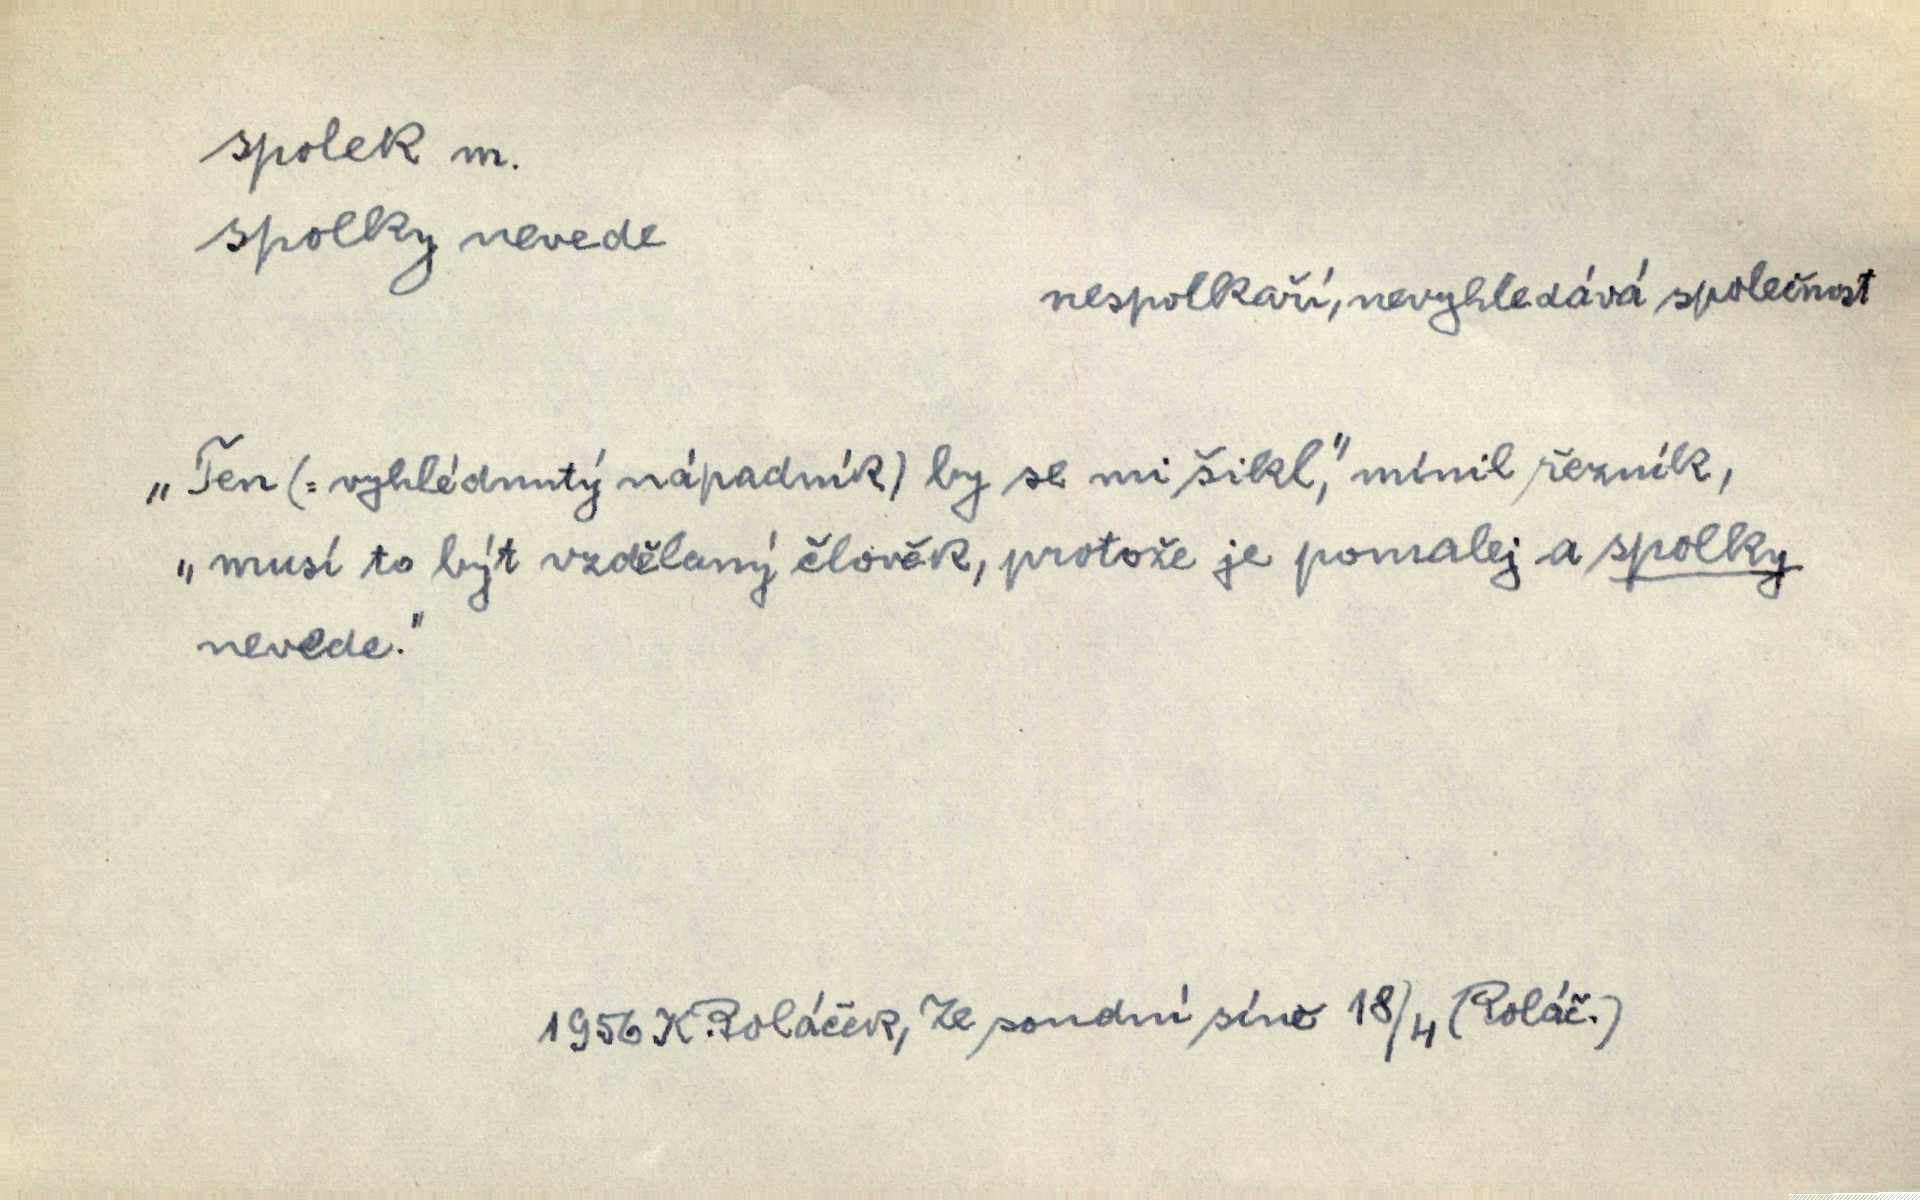 spolek m.
spolky nevede
nespolkaří, nevyhledává společnost
„Ten (= vyhlédnutý nápadník) by se mi šikl," mínil řezník,
„musí to být vzdělaný člověk, protože je pomalej a spolky
nevede."
1956 K. Poláček, Ze soudní síně 18/4 (Poláč.)